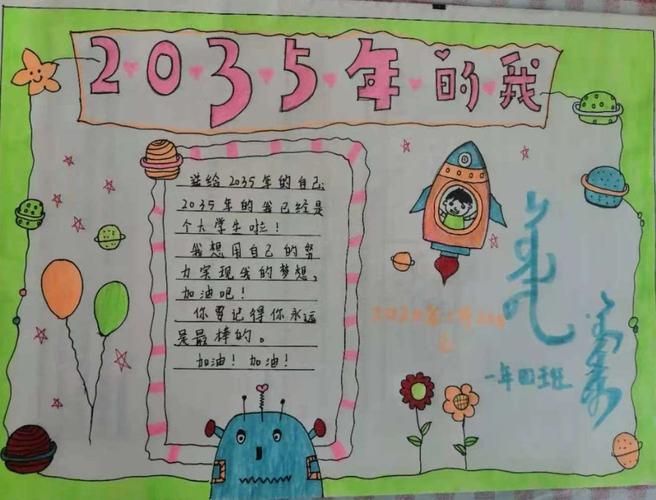 2035年的我
送给2035年的自己:
2035年的我已经是
个大学生啦!
我想用自己的努
力实现我的梦想,
加油吧!
你要记得你永远
是最棒的。
加油! 加油!
一年四班